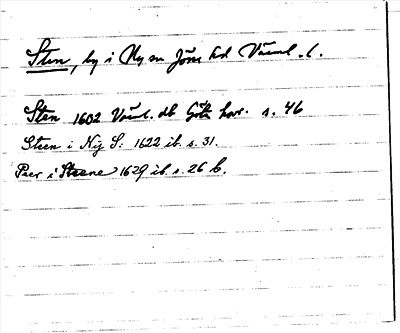 Sten, by i Ny sn Jösse hd Värml. l.
Sten 1602 Värml. db Göta hovr. s. 46
Steen i Nÿ S: 1622 ib. s. 31.
Peer i Steene 1629 ib. s. 26 b.